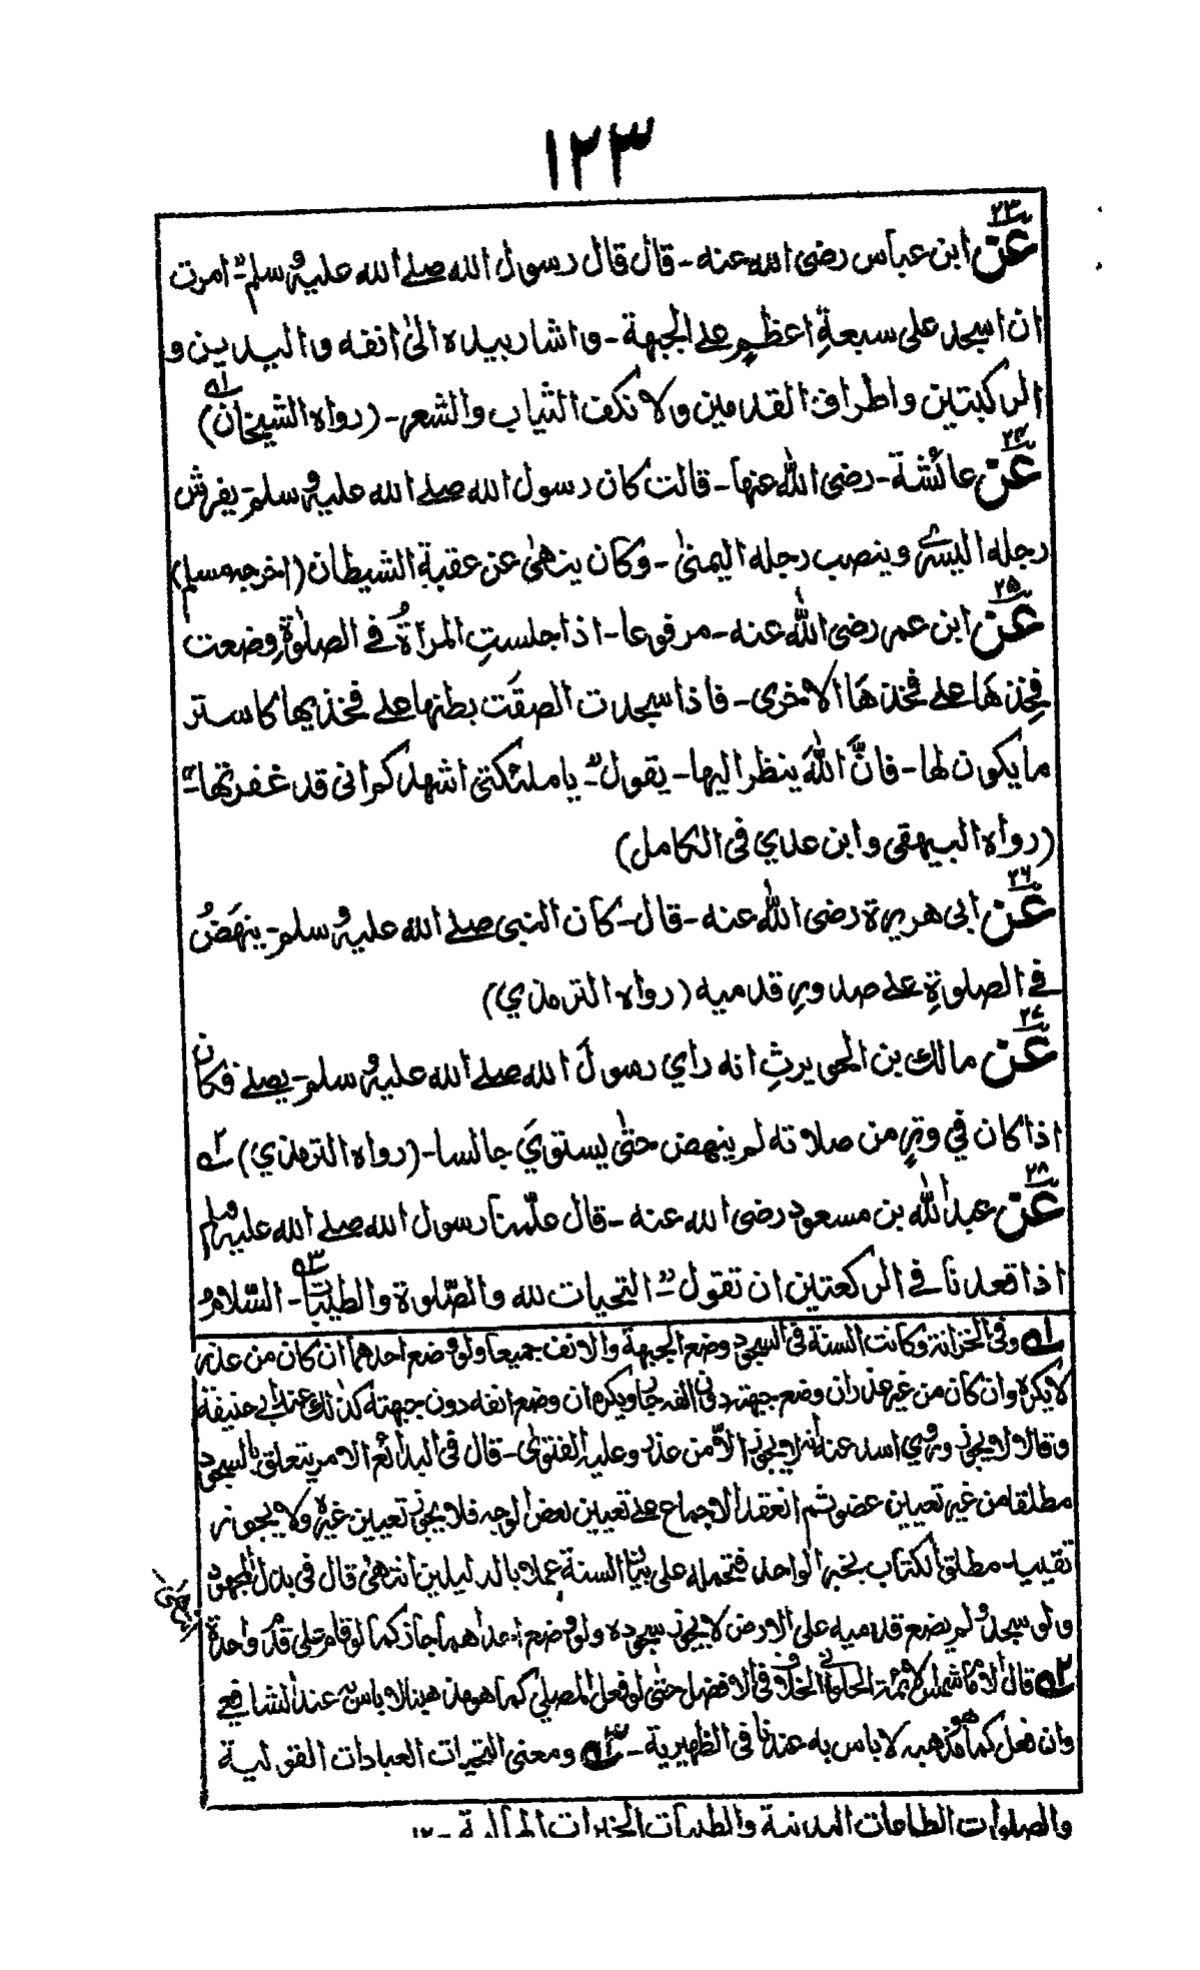 ١٢٣
٢٣
عن ابن عباس رضى الله عنه - قال قال رسول الله صلے الله عليه وسلم - امرت
ان اسجد على سبعةِ اعظمٍ علے الجبهة - واشار بيده الىٰ انفه واليدين و
الركبتين واطراف القدمين ولا نكف الثياب والشعر - (رواه الشيخان) له
٢٤
عن عائشة - رضى الله عنها - قالت كان رسول الله صلے الله عليه وسلم - يفرش
رجله اليسرےٰ وينصب رجله اليمنىٰ - وكان ينهىٰ عن عقبة الشيطان (اخرجه مسلم)
٢٥
عن ابن عمر رضى الله عنه - مرفوعا - اذا جلستِ المرأةُ فے الصلوٰةِ وضعت
فخذهَا علے فخذهَا الاخرى - فاذا سجدت الصقَت بطنها علے فخذيها كاستر
ما يكون لها - فانَّ اللهَ ينظر اليها - يقول - يا ملٰئكتى اشهدكم انى قد غفرتها -
(رواه البيهقى وابن عدي فى الكامل)
٢٦
عن ابى هريرة رضى الله عنه - قال - كان النبى صلے الله عليه وسلم - ينهَضُ
فے الصلوةِ علے صدورِ قدميه (رواه الترمذي)
٢٧
عن مالك بن الحويرثِ انه راي رسولَ الله صلے الله عليه وسلم - يصلے فكان
اذا كان في وترٍ من صلاته لم ينهض حتىٰ يستويَ جالسا - (رواه الترمذي) ٢ه
٢٨
عن عبد الله بن مسعود رضى الله عنه - قال علّمنا رسول الله صلے الله عليه وسلم
اذا قعدنا فے الركعتين ان نقول - التحيات لله والصّلوة والطيبات ٣ه - السّلامُ
١ه وفى الخزانة وكانت السنة فى السجود وضع الجبهة والانف جميعا ولو وضع احدهما ان كان من عذر
لا يكره وان كان من غير عذر ان وضع جبهته دون انفه جاز ويكره ان وضع انفه دون جبهته كذلك عند ابى حنيفة
وقالا لا يجوز وروي اسد عنه انه لا يجوز الّا من عذر وعليه الفتوىٰ - قال فى البدائع الامر يتعلق بالسجود
مطلقا من غير تعيين عضو ثم انعقد الاجماع علے تعيين بعض الوجه فلا يجوز تعيين غيره ولا يجوز
تقييد - مطلق الكتاب بخبر الواحد فتحمله على بيان السنة عملا بالدليلين انتهىٰ قال فى بدل المجهود
ولو سجد ولم يضع قدميه على الارض لا يجوز سجوده ولو وضع احداهما جاز كما لو قام على قدم واحدة
٢ه قال الامام شمس الائمة الحلوانى الخلاف فى الافضل حتىٰ لو فعل المصلي كما هو مذهبنا لا باس به عند الشافعے
وان فعل كما هو مذهبه لا باس به عندنا فى الظهيرية - ٣ه ومعنى التحيات العبادات القولية
والصلوات الطاعات البدنية والطيبات الخيرات المالية - ١٢